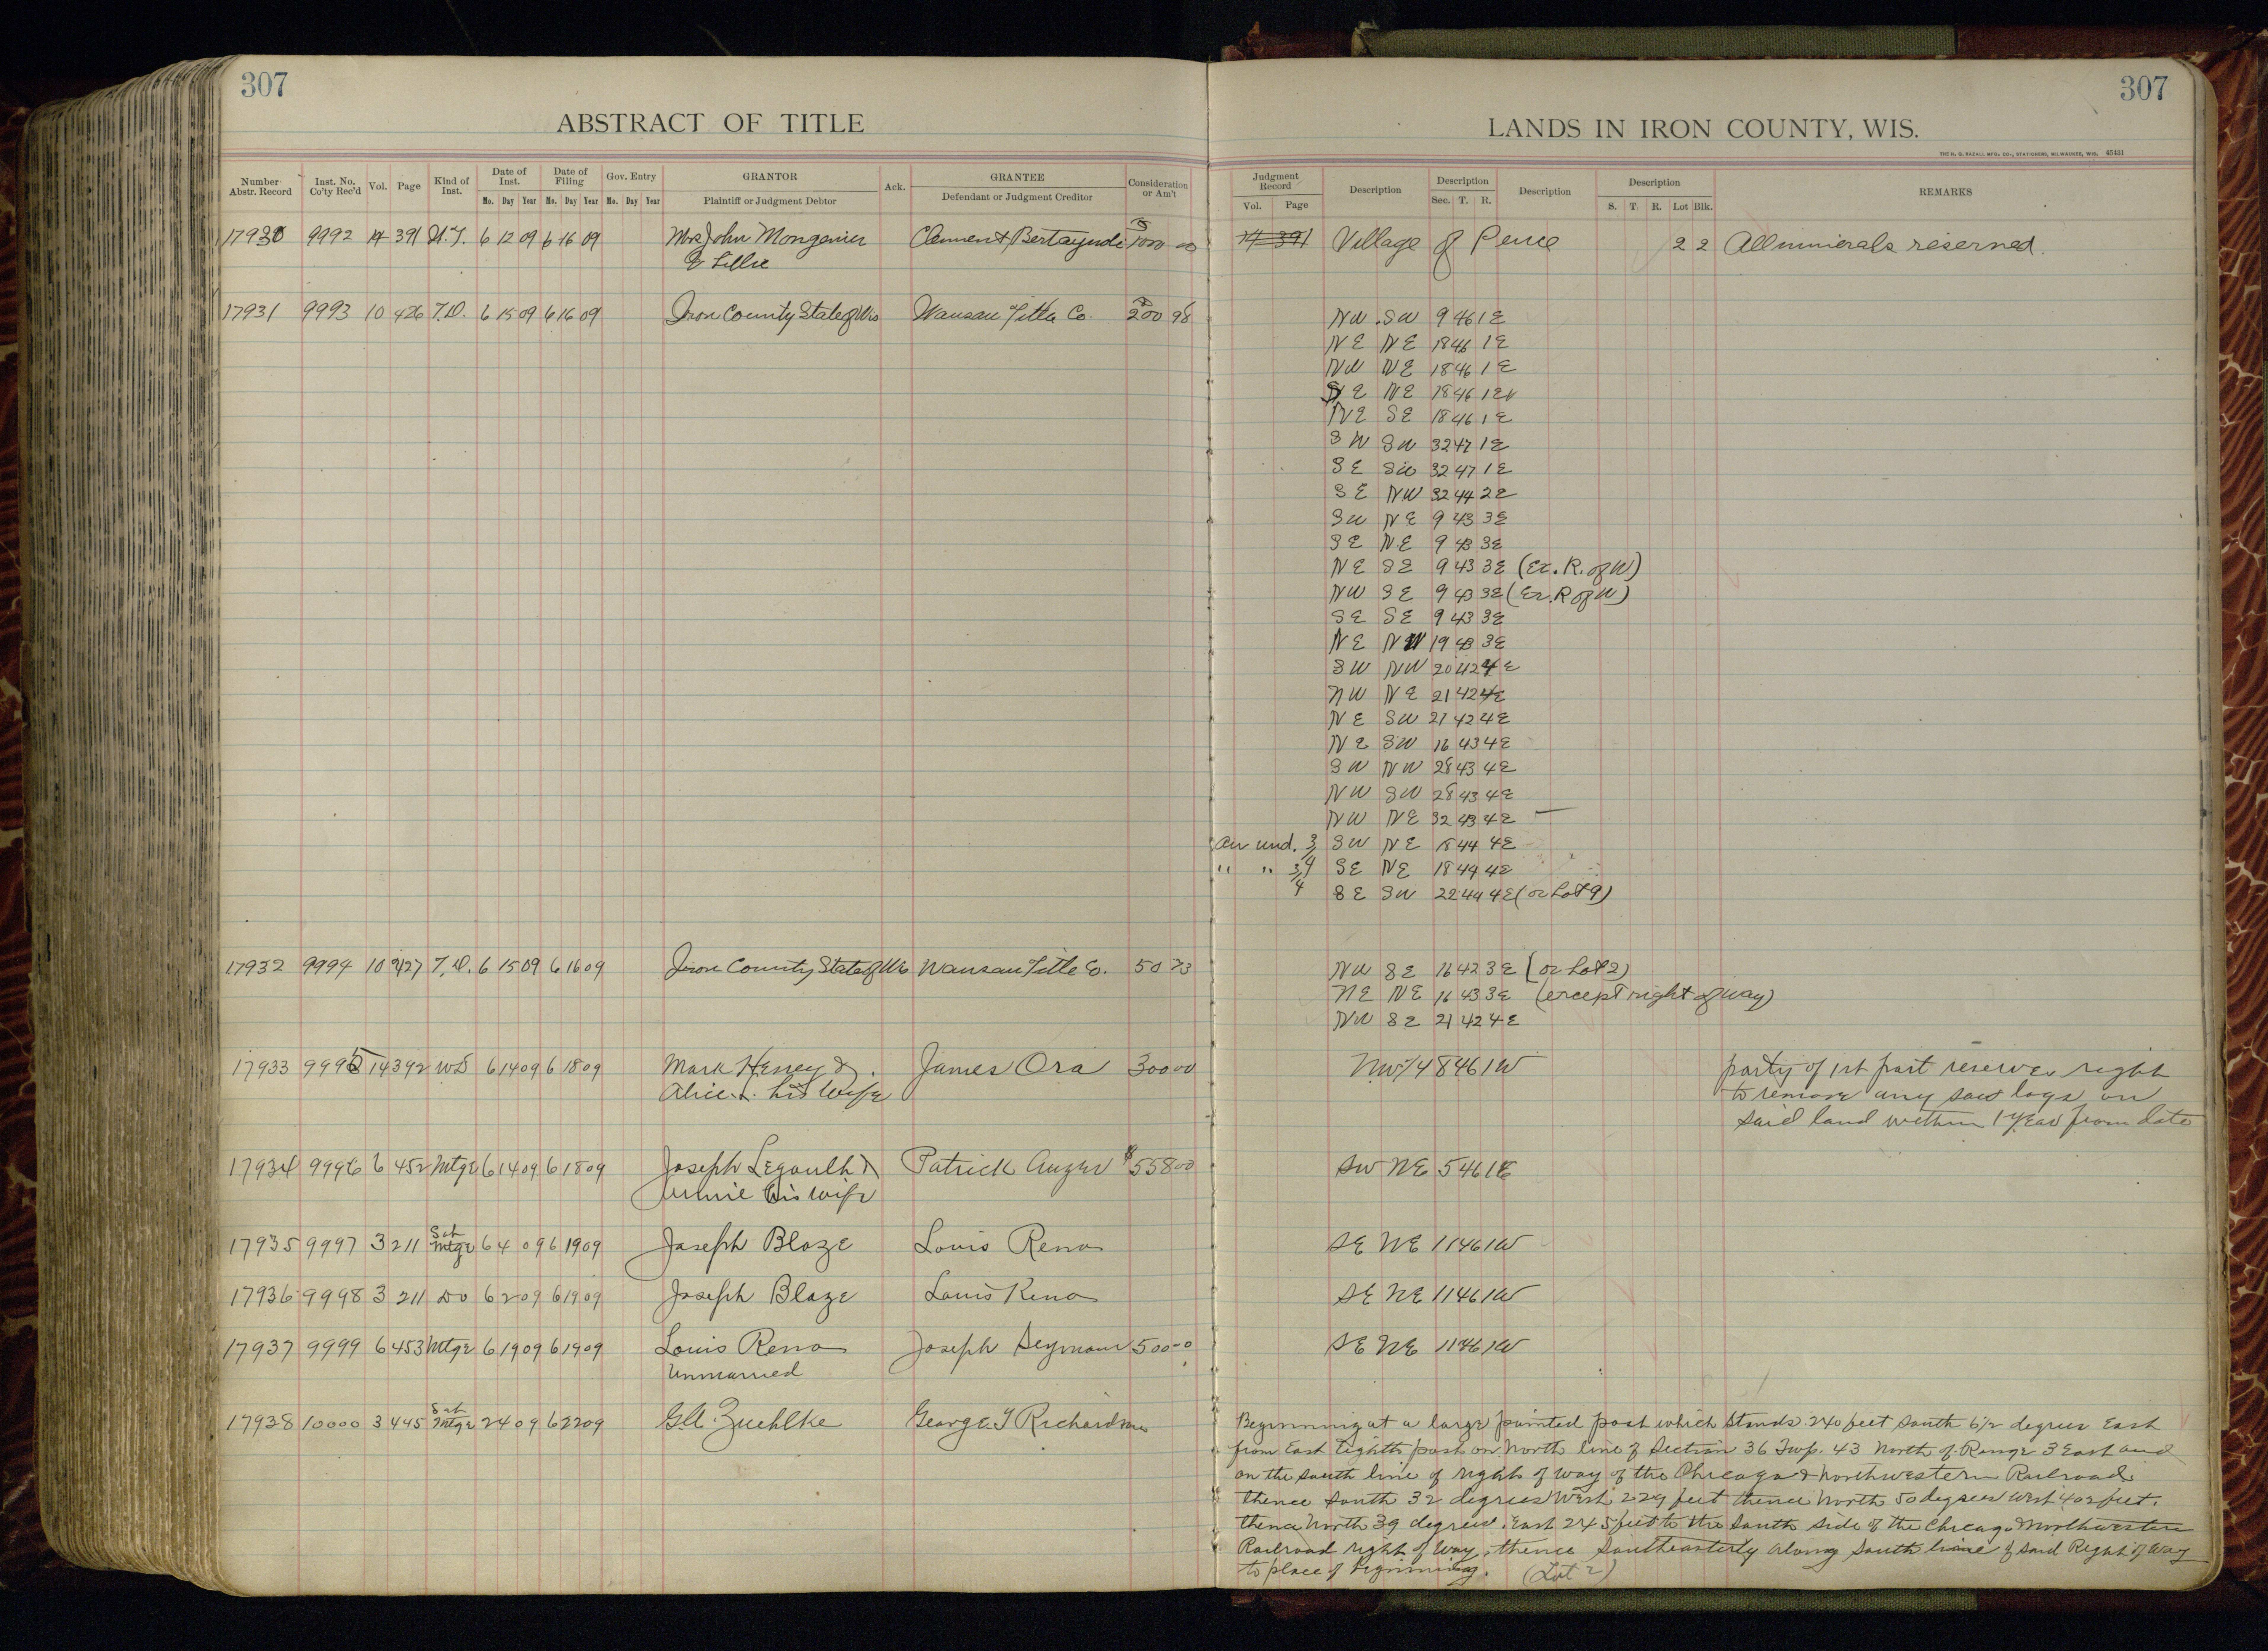 307
ABSTRACT OF TITLE
Number Abstr. Record
Inst. No. Co'ty Rec'd
Vol.
Page
Kind of Inst.
Date of Inst.
Mo. Day Year
Date of Filing
Mo. Day Year
Gov. Entry
Mo. Day Year
GRANTOR
Plaintiff or Judgment Debtor
Ack.
GRANTEE
Defendant or Judgment Creditor
Consideration or Am't
17930 9992 14 391 6 12 09 6 16 09 Mrs John Clement 1000 00
& Lillie
17931 9993 10 426 T.D. 6 15 09 6 16 09 Iron County State of Wis Wausau Title Co. 200 98
17932 9994 10 427 T.D. 6 15 09 6 16 09 Iron County State of Wis Wausau Title Co. 50
17933 9995 14 392 WD 6 14 09 6 18 09 Mark Heney & James Ora 300 00
Alice. his Wife
17934 9996 6 452 Mtge 6 14 09 6 18 09 Joseph Legault & Patrick $558 00
Jennie his wife
17935 9997 3 211 Sat Mtge 6 4 09 6 19 09 Joseph Blaze Louis Reno
17936 9998 3 211 Do 6 2 09 6 19 09 Joseph Blaze Louis Reno
17937 9999 6 453 Mtge 6 19 09 6 19 09 Louis Reno Joseph Seymour 500 00
Unmarried
17938 10000 3 445 Sat Mtge 2 4 09 6 22 09 G.A. Zuehlke George T Richardson
307
LANDS IN IRON COUNTY, WIS.
THE H. G. RAZALL MFG. CO., STATIONERS, MILWAUKEE, WIS. 45431
Judgment Record
Vol. Page
Description
Description
Sec. T. R.
Description
Description
S. T. R. Lot Blk.
REMARKS
14 391 Village of Pence 2 2 All minerals reserved.
NW SW 9 46 1 E
NE NE 18 46 1 E
NW NE 18 46 1 E
SE NE 18 46 1 E
NE SE 18 46 1 E
SW SW 32 47 1 E
SE SW 32 47 1 E
SE NW 32 44 2 E
SW NE 9 43 3 E
SE NE 9 43 3 E
NE SE 9 43 3 E (Ex. R. of W)
NW SE 9 43 3 E (Ex. R of W)
SE SE 9 43 3 E
NE NW 19 43 3 E
SW NW 20 42 4 E
NW NE 21 42 4 E
NE SW 21 42 4 E
NE SW 16 43 4 E
SW NW 28 43 4 E
NW SW 28 43 4 E
NW NE 32 43 4 E
An und. 3/4 SW NE 18 44 4 E
" " 3/4 SE NE 18 44 4 E
SE SW 22 44 4 E (or Lot 9)
NW SE 16 42 3 E (or Lot 2)
NE NE 16 43 3 E (except right of way)
NW SE 21 42 4 E
NW 1/4 8 46 1 W party of 1st part reserves right
to remove any saw logs on
said land within 1 year from date
SW NE 5 46 1 E
SE NE 11 46 1 W
SE NE 11 46 1 W
SE NE 11 46 1 W
Beginning at a large painted post which stands 240 feet South 6 1/2 degrees East
from East Eighth post on North line of Section 36 Twp. 43 North of Range 3 East and
on the South line of right of way of the Chicago & Northwestern Railroad
thence South 32 degrees West 229 feet thence North 50 degrees West 402 feet,
thence North 39 degrees East 245 feet to the South side of the Chicago & Northwestern
Railroad right of way, thence Southeasterly along South line of said Right of Way
to place of beginning. (Lot 2)